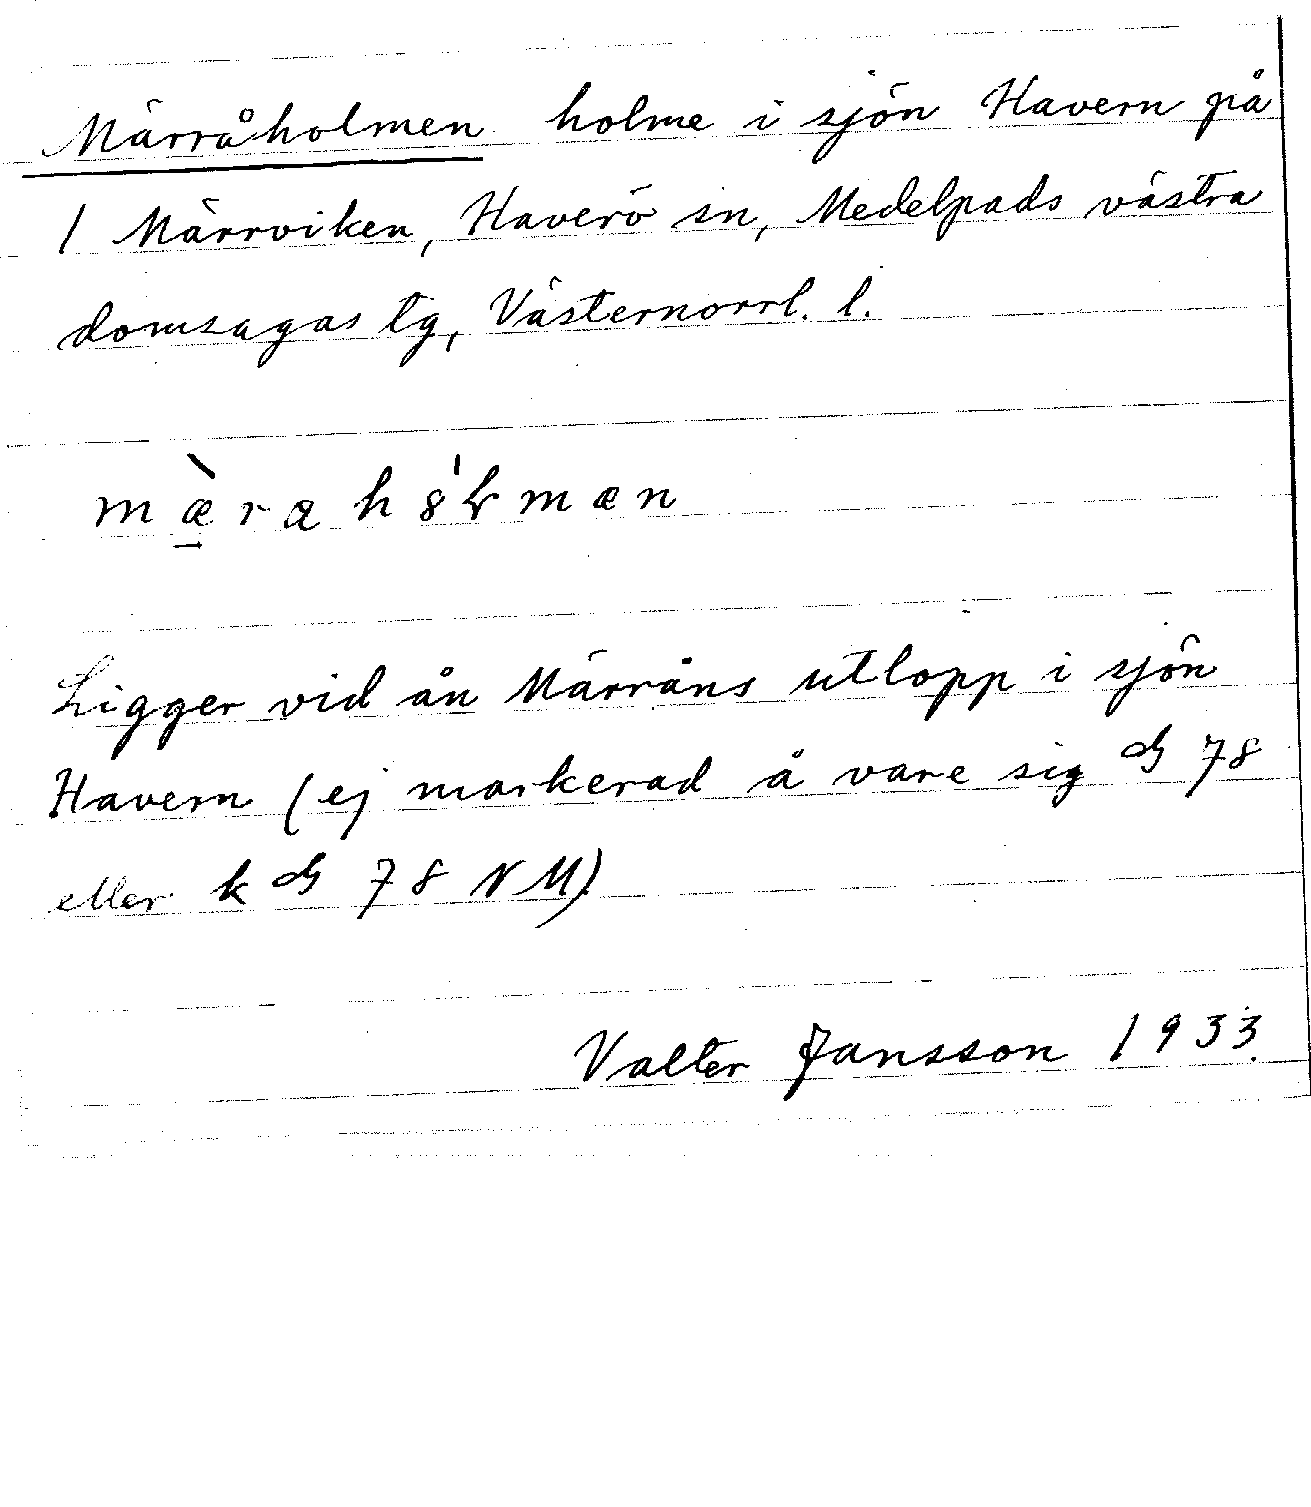 Märråholmen holme i sjön Havern på
1 Märrviken, Haverö sn, Medelpads västra
domsagas tg, Västernorrl. l.
Ligger vid ån Märråns utlopp i sjön
Havern (ej markerad å vare sig 78
eller k 78 NM)
Valter Jansson 1933.